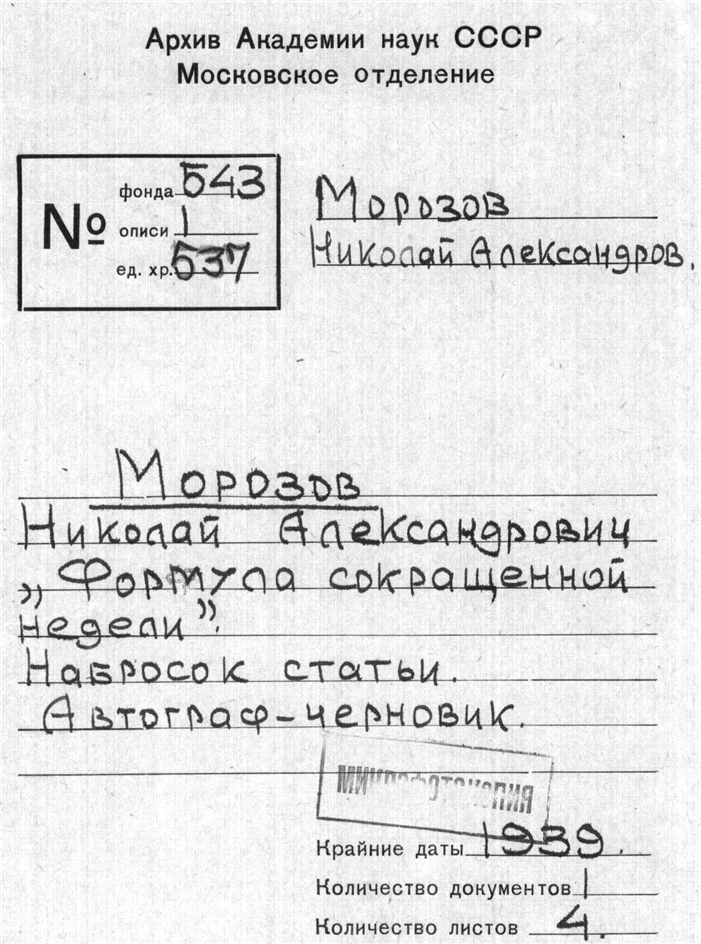 Архив Академии наук СССР
Московское отделение
№
фонда 543
описи 1
ед. хр. 537
Морозов
Николай Александров.
Морозов
Николай Александрович
„Формула сокращенной
недели".
Набросок статьи.
Автограф-черновик.
МИКРОФОТОКОПИЯ
Крайние даты 1939.
Количество документов 1
Количество листов 4.